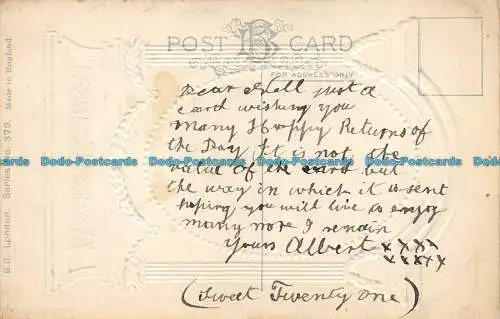 POST CARD
FOR ADDRESS ONLY
Dear Nell just a
card wishing you
many Happy Returns of
the Day It is not the
value of the card but
the way in which it is sent
hoping you will live to enjoy
many more I remain
Yours Albert xxxx
xxxxx
(Sweet Twenty one)
B.B. London. Series No. 379. Made in England.
Dodo-Postcards Dodo-Postcards Dodo-Postcards Dodo-Postcards
Dodo-Postcards Dodo-Postcards Dodo-Postcards Dodo-Postcards